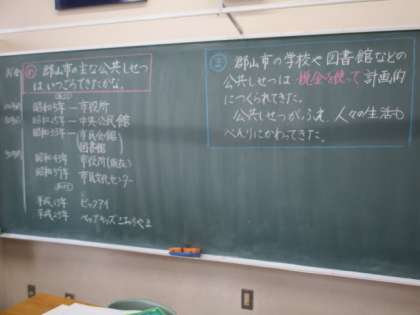 め 郡山市の主な公共しせつ
はいつごろできたかな。
昭和5年―市役所
昭和25年―中央公民館
昭和33年―市民会館
図書館
昭和43年 市役所(現在)
昭和59年 市民文化センター
平成13年 ビッグアイ
平成23年 ペップキッズこおりやま
ま 郡山市の学校や図書館などの
公共しせつは税金を使って計画的
につくられてきた。
公共しせつがふえ、人々の生活も
べんりにかわってきた。